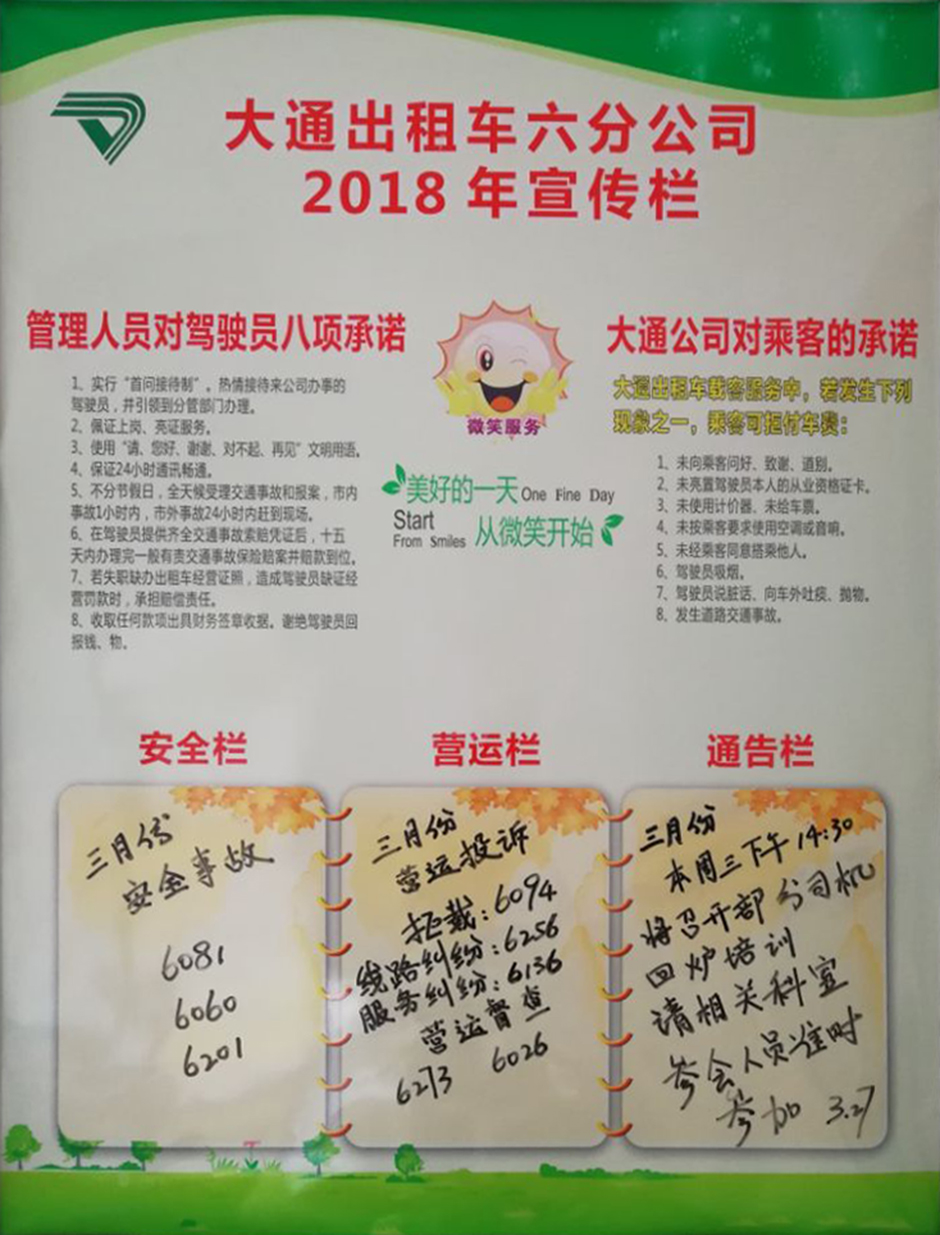 大通出租车六分公司
2018 年宣传栏
管理人员对驾驶员八项承诺
1、实行“首问接待制”。热情接待来公司办事的
驾驶员，并引领到分管部门办理。
2、佩证上岗、亮证服务。
3、使用“请、您好、谢谢、对不起、再见”文明用语。
4、保证24小时通讯畅通。
5、不分节假日，全天候受理交通事故和报案，市内
事故1小时内，市外事故24小时内赶到现场。
6、在驾驶员提供齐全交通事故索赔凭证后，十五
天内办理完一般有责交通事故保险赔案并赔款到位。
7、若失职缺办出租车经营证照，造成驾驶员缺证经
营罚款时，承担赔偿责任。
8、收取任何款项出具财务签章收据。谢绝驾驶员回
报钱、物。
微笑服务
美好的一天 One Fine Day
Start
From smiles 从微笑开始
大通公司对乘客的承诺
大通出租车载客服务中，若发生下列
现象之一，乘客可拒付车费：
1、未向乘客问好、致谢、道别。
2、未亮置驾驶员本人的从业资格证卡。
3、未使用计价器、未给车票。
4、未按乘客要求使用空调或音响。
5、未经乘客同意搭乘他人。
6、驾驶员吸烟。
7、驾驶员说脏话、向车外吐痰、抛物。
8、发生道路交通事故。
安全栏
三月份
安全事故
6081
6060
6201
营运栏
三月份
营运投诉
拒载：6094
线路纠纷：6256
服务纠纷：6136
营运督查
6273 6026
通告栏
三月份
本周三下午14:30
将召开部分司机
回炉培训
请相关科室
参会人员准时
参加 3.27